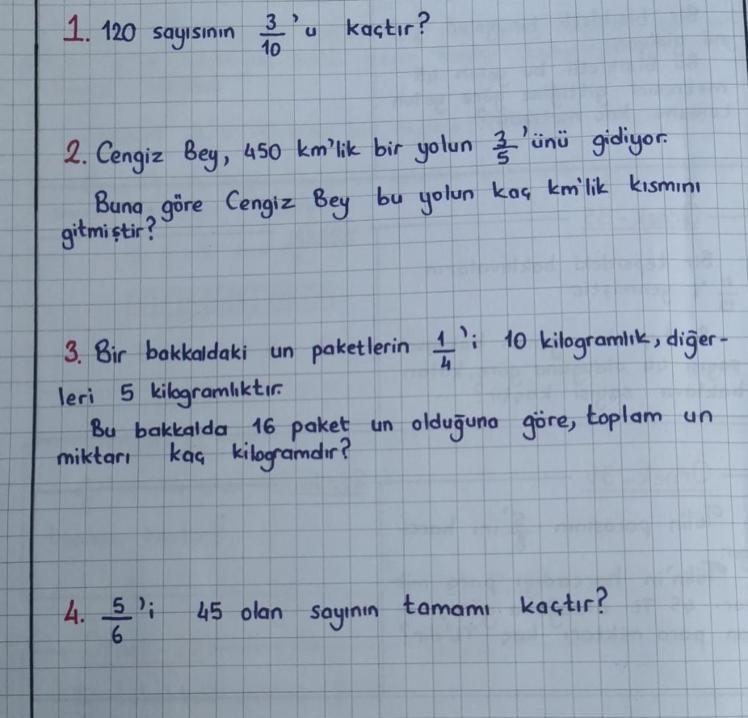 1. 120 sayısının 3/10'u kaçtır?
2. Cengiz Bey, 450 km'lik bir yolun 3/5'ünü gidiyor.
Buna göre Cengiz Bey bu yolun kaç km'lik kısmını
gitmiştir?
3. Bir bakkaldaki un paketlerin 1/4'i 10 kilogramlık, diğer-
leri 5 kilogramlıktır.
Bu bakkalda 16 paket un olduğuna göre, toplam un
miktarı kaç kilogramdır?
4. 5/6'i 45 olan sayının tamamı kaçtır?